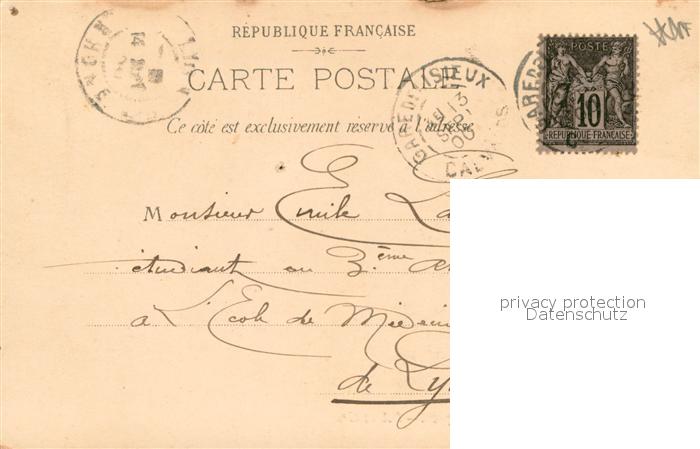 RÉPUBLIQUE FRANÇAISE
CARTE POSTALE
Ce côté est exclusivement réservé à l'adresse
GARE DE LISIEUX
13
SEPT
00
CALVADOS
POSTE
10
RÉPUBLIQUE FRANÇAISE
RHONE
14
Monsieur Emile La
étudiant en 3ème a
à l'Ecole de Médecin
de Ly
privacy protection
Datenschutz